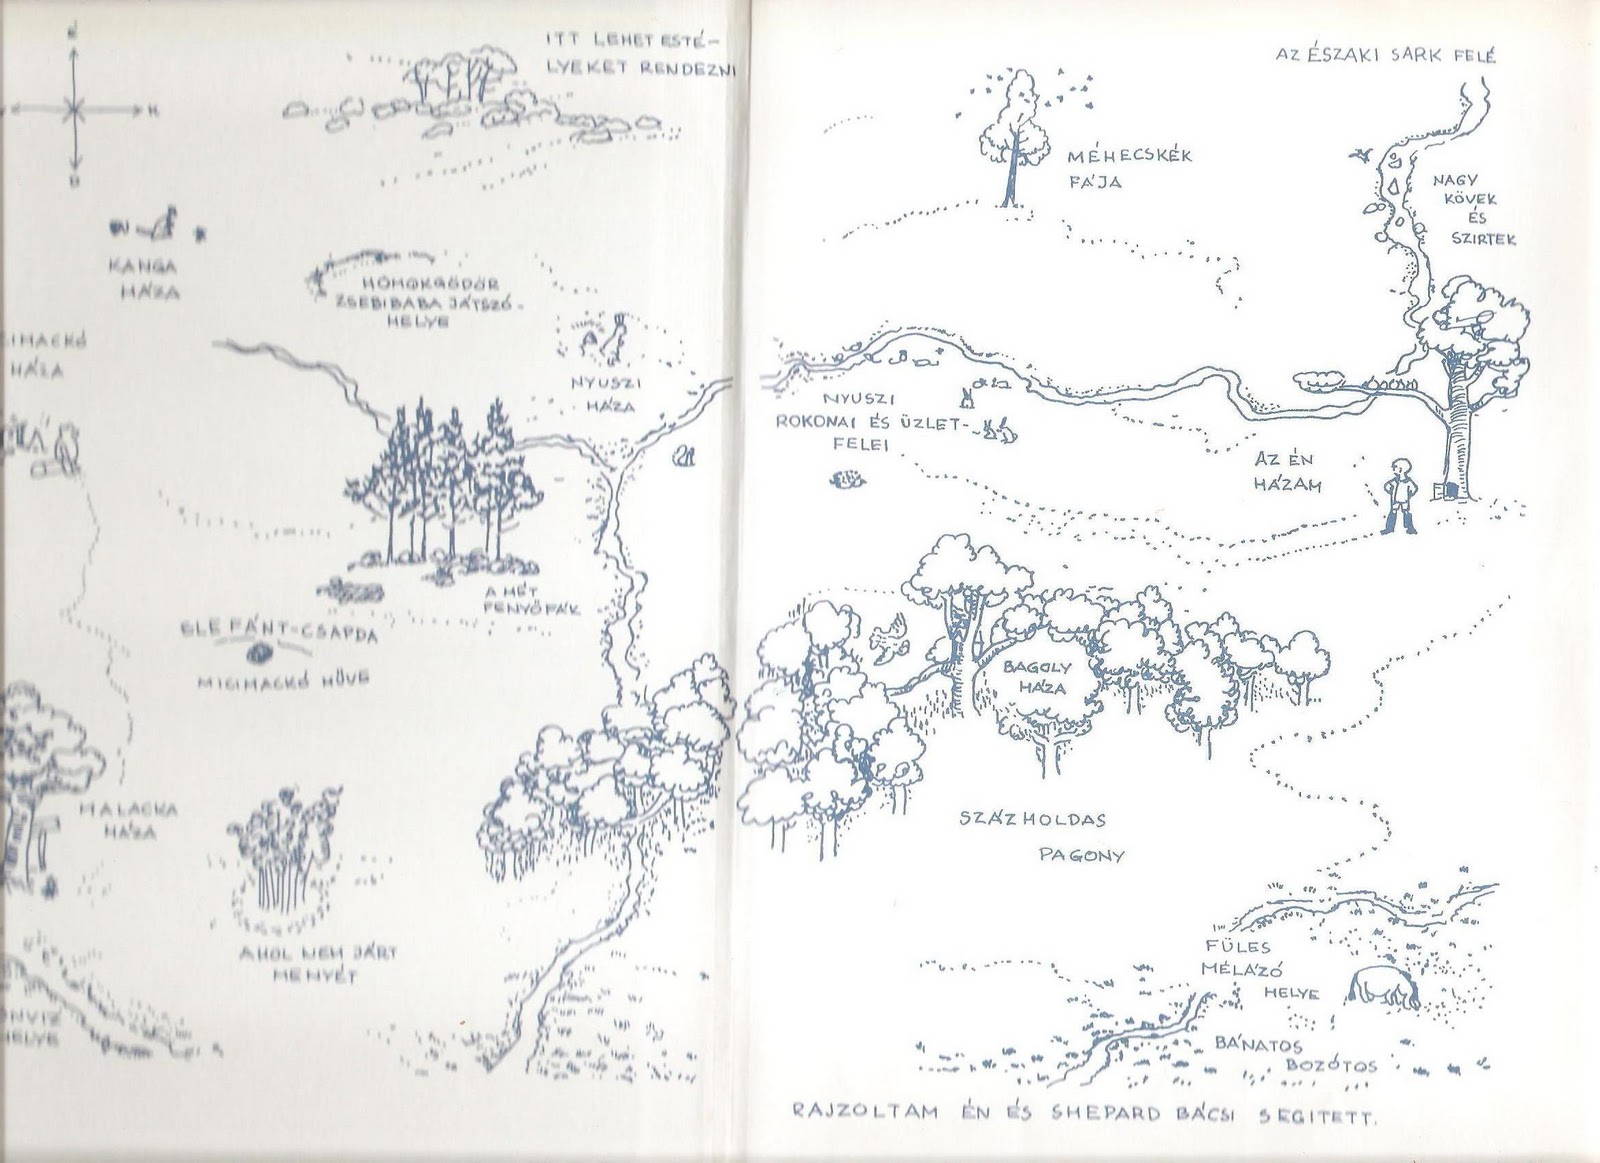 É
K
D
ITT LEHET ESTÉ-
LYEKET RENDEZNI
KANGA
HÁZA
HOMOKGÖDÖR
ZSEBIBABA JÁTSZÓ-
HELYE
IMACKÓ
HÁZA
NYUSZI
HÁZA
A HÉT
FENYŐFÁK
ELEFÁNT-CSAPDA
MICIMACKÓ MŰVE
MALACKA
HÁZA
AHOL NEM JÁRT
MENYÉT
NVIZ
ELYE
AZ ÉSZAKI SARK FELÉ
MÉHECSKÉK
FÁJA
NAGY
KÖVEK
ÉS
SZIRTEK
NYUSZI
ROKONAI ÉS ÜZLET-
FELEI
AZ ÉN
HÁZAM
BAGOLY
HÁZA
SZÁZHOLDAS
PAGONY
FÜLES
MÉLÁZÓ
HELYE
BÁNATOS
BOZÓTOS
RAJZOLTAM ÉN ÉS SHEPARD BÁCSI SEGITETT.